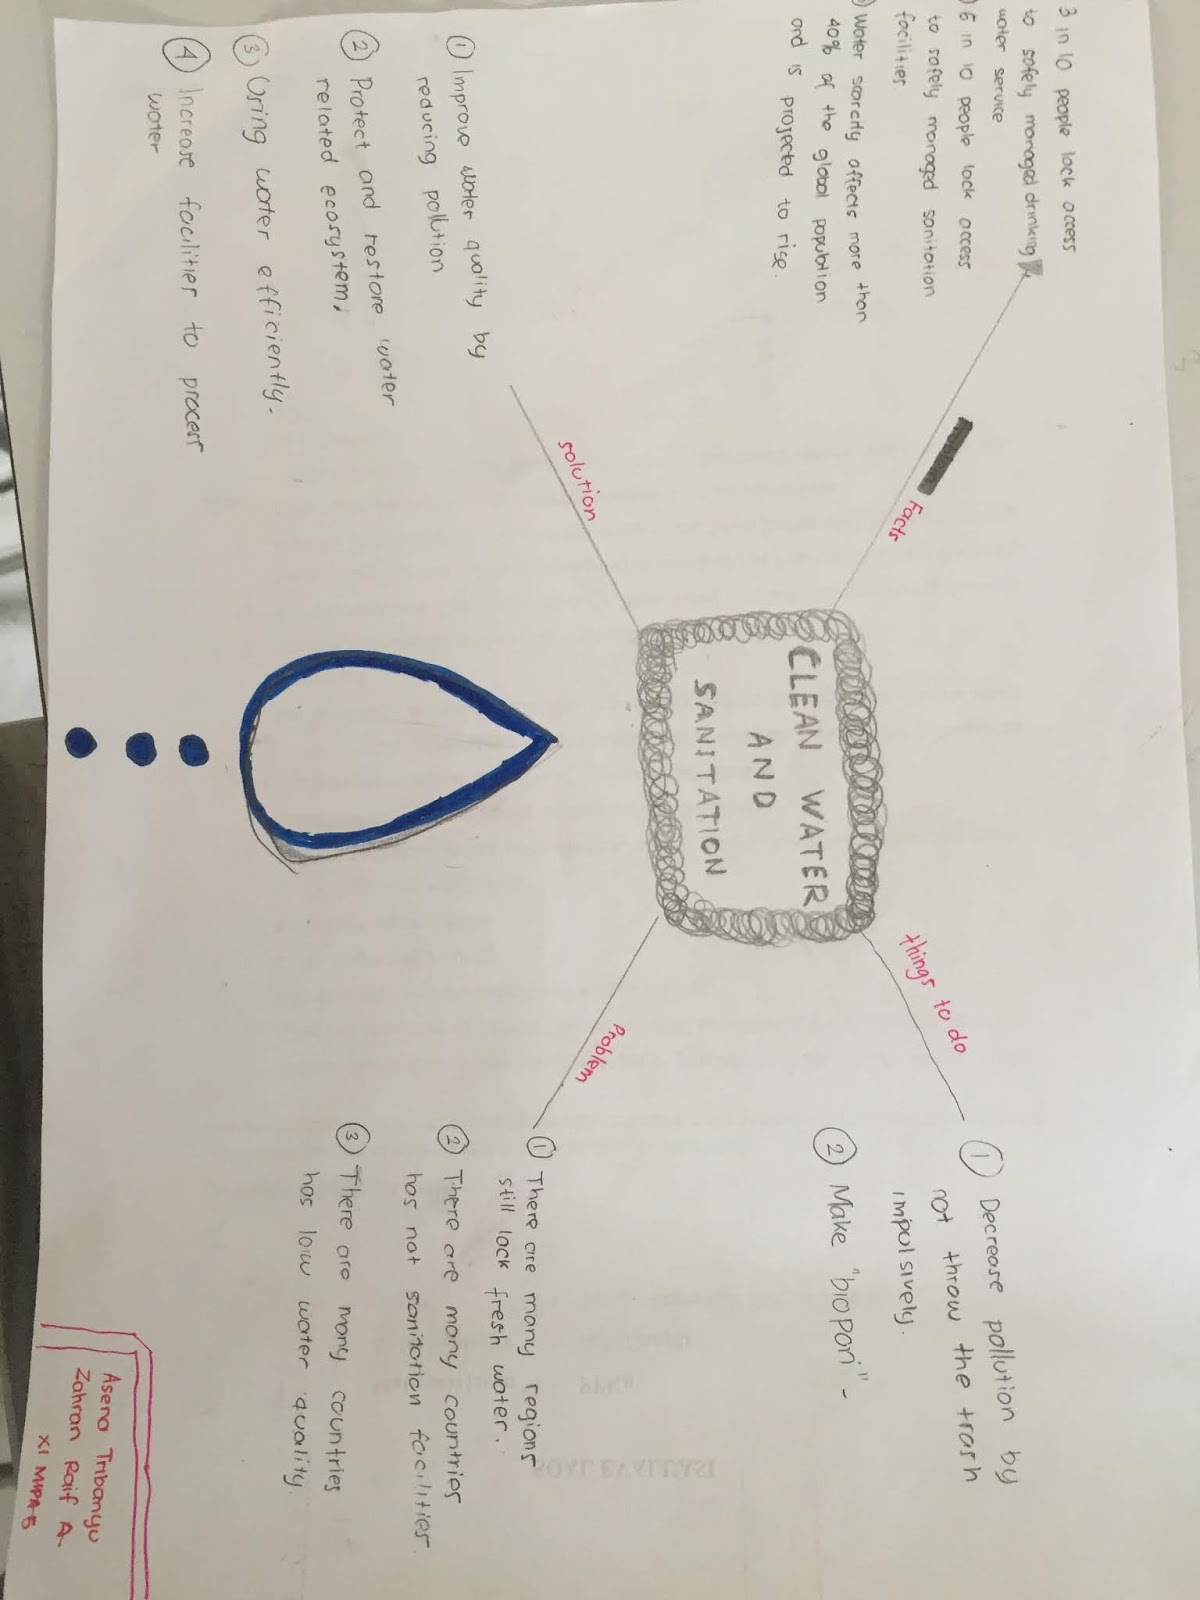 3 in 10 people lack access
to safely managed drinking
water service
6 in 10 people lack access
to safely managed sanitation
facilities
Water scarcity affects more than
40% of the global population
and is projected to rise.
Facts
① Improve water quality by
reducing pollution
② Protect and restore water
related ecosystem.
③ Using water efficiently.
④ Increase facilities to process
water
solution
CLEAN WATER
AND
SANITATION
things to do
① Decrease pollution by
not throw the trash
impulsively.
② Make "biopori" -
Problem
① There are many regions
still lack fresh water.
② There are many countries
has not sanitation facilities
③ There are many countries
has low water quality.
Asena Tribanyu
Zahran Raif A.
XI MIPA-5